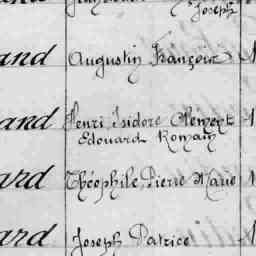 Joseph
and Augustin François
and Henri Isidore Clement
Edouard Romain
ard Théophile Pierre Marie
ard Joseph Patrice